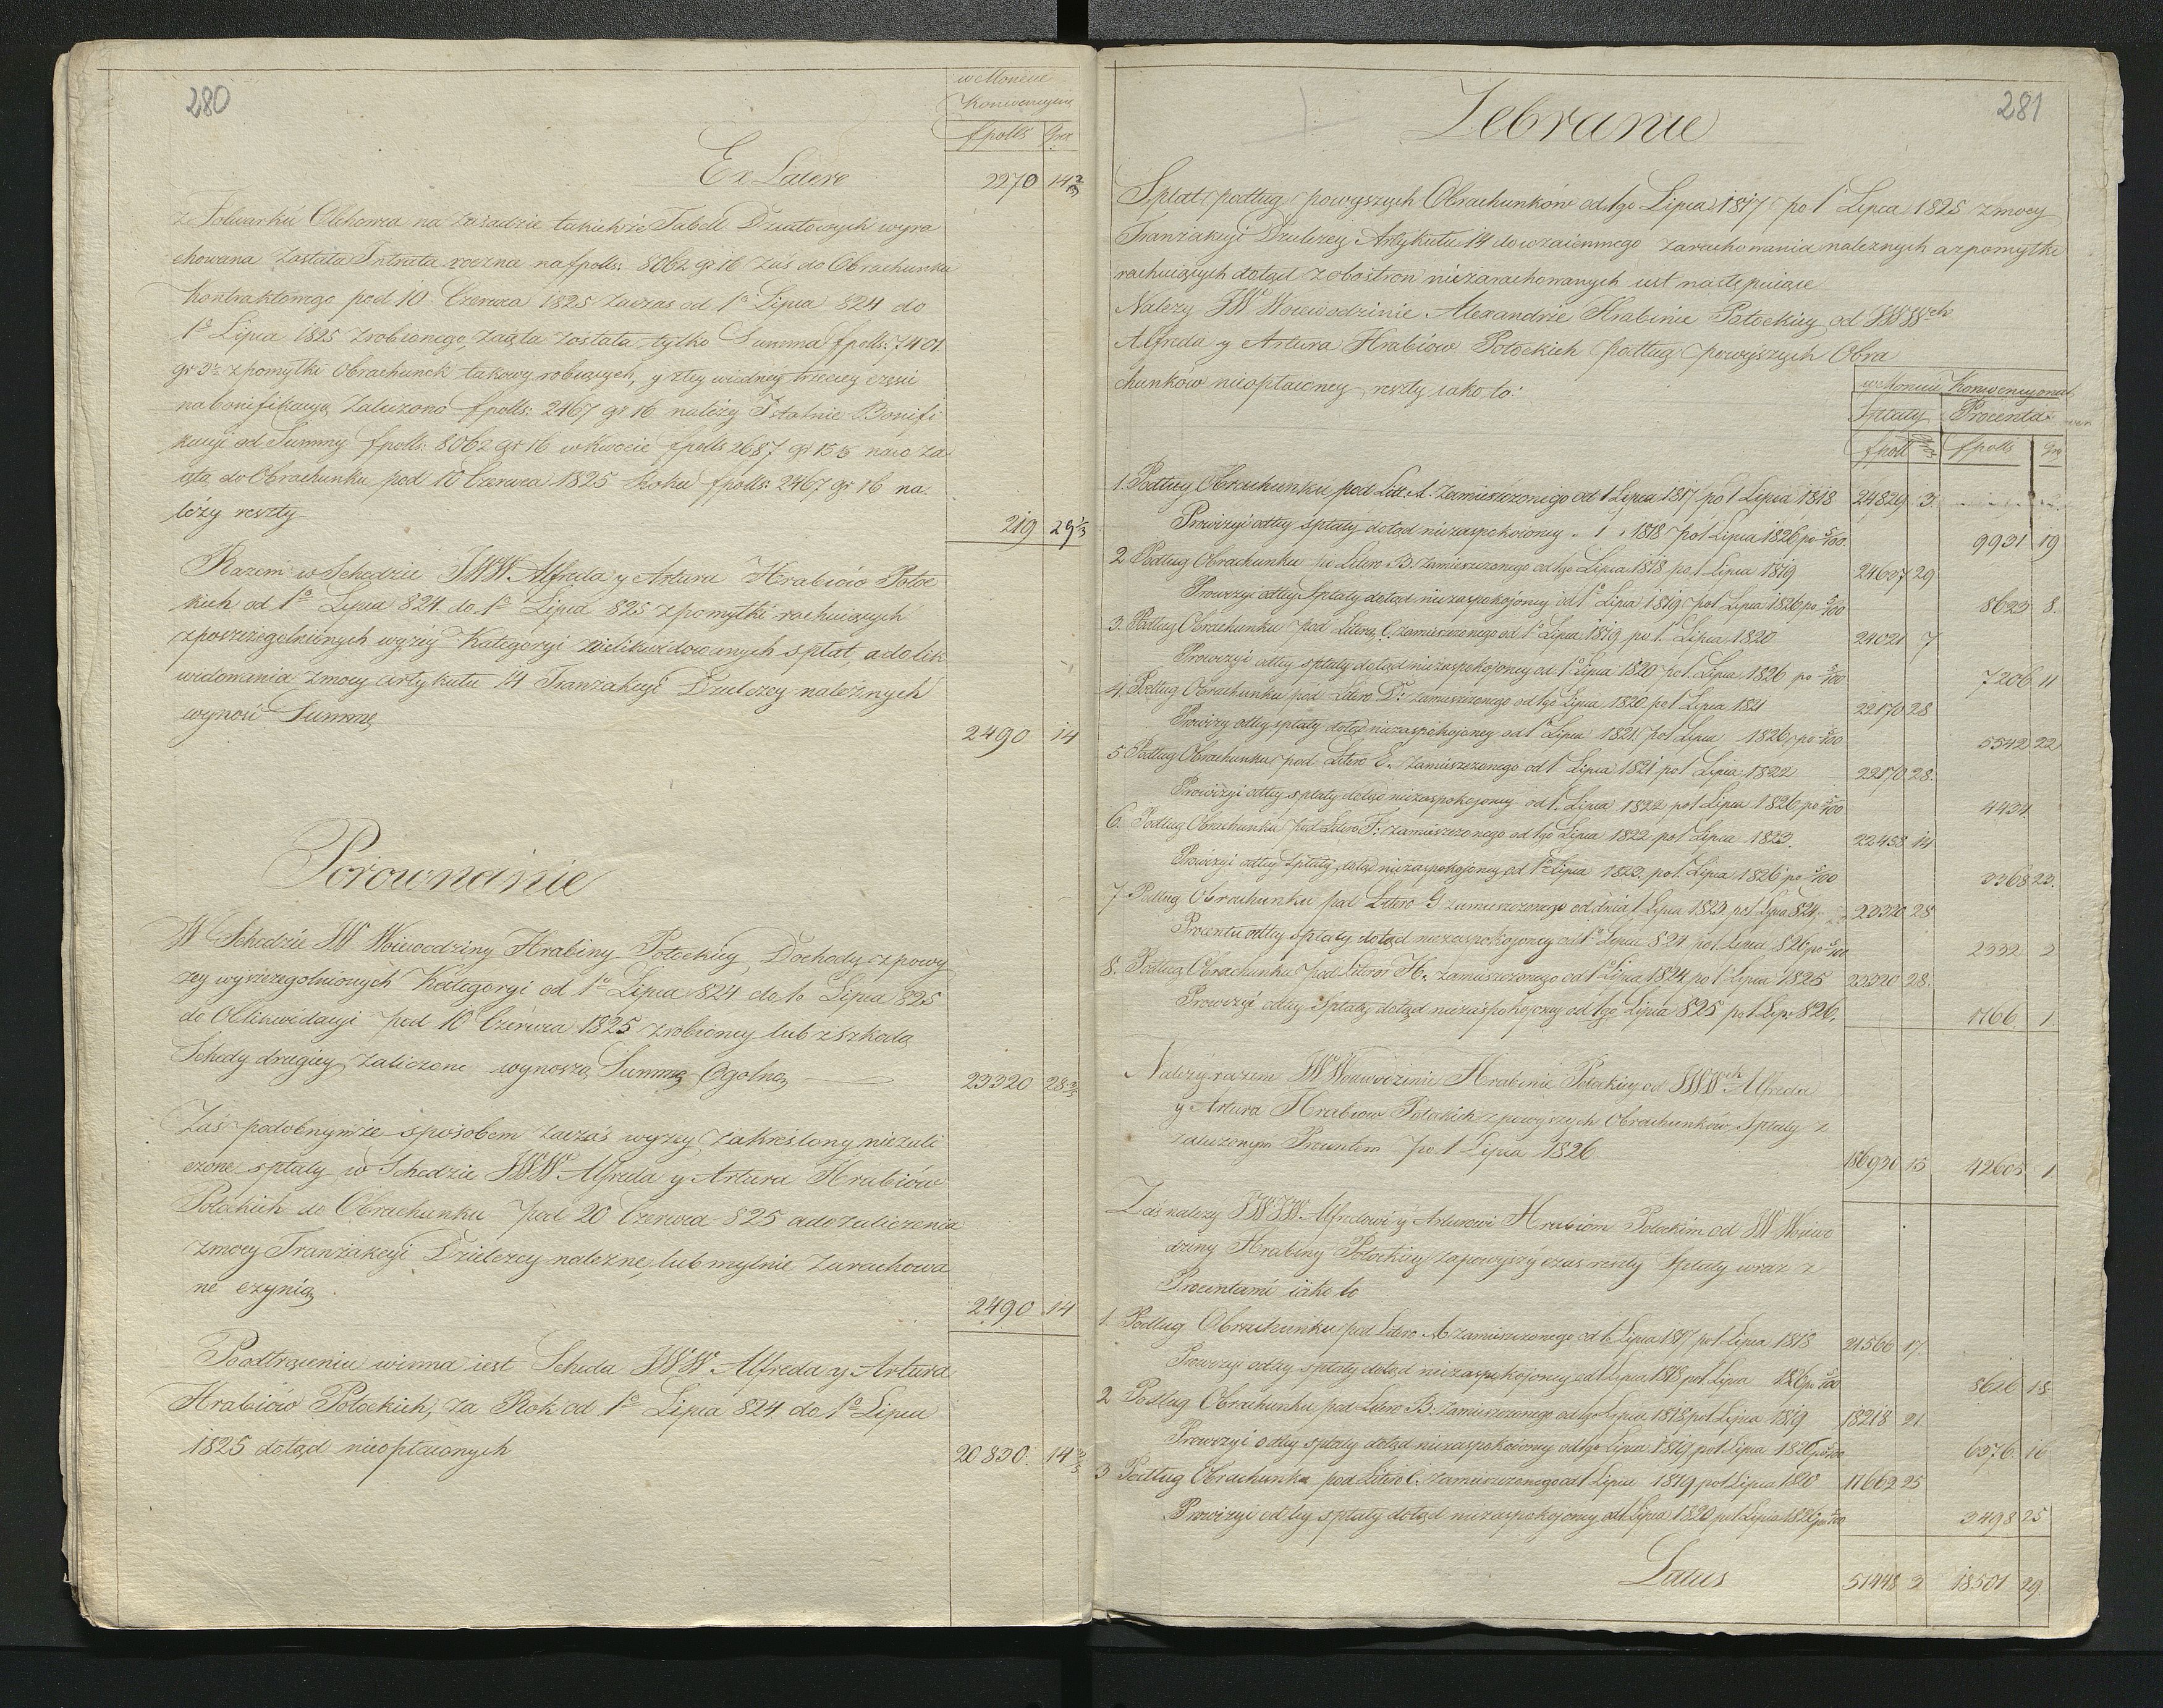 280
w Monecie
Konwencyjney
fpolls Gra
Ex Latere 2270 14 2/3
z Folwarku Olchowca na zasadzie takichże Tabell Działowych wyra
chowana została Intrata roczna na fpolls: 8062 gr 16 zaś do Obrachunku
Kontraktowego pod 10 Czerwca 1825 za czas od 1o Lipca 824 do
1o Lipca 1825 zrobionego, zaięta została tylko Summa fpolls: 7401
gr z pomyłki Obrachunek takowy robiących, y z tey wiedney trzeciey części
na bonifikacyą założono fpolls: 2467 gr 16 należy Istotnie Bonifi
kacyi od Summy fpolls: 8062 gr 16 w kwocie fpolls 2687 gr 15 za
iętą do Obrachunku pod 10 Czerwca 1825 Roku fpolls: 2467 gr 16 na:
leży reszty 219 29 1/3
Razem w Schedzie JWW Alfreda y Artura Hrabiów Potoc
kich od 1o Lipca 824 do 1o Lipca 825 z pomyłki rachuiących
z poszczególnionych wyżey Kategoryi nielikwidowanych spłat, a do lik
widowania z mocy artykułu 14 Tranzakcyi Dzielczey należnych
wynosi Summę 2490 14
Porownanie
W Schedzie JW Woiewodziny Hrabiny Potockiey Dochody z powy
żey wyszczegolnionych Kategoryi od 1o Lipca 824 do 1o Lipca 825
do Oblikwidacyi pod 10 Czerwca 1825 zrobioney lub z szkodą
Schedy drugiey zaliczone wynoszą Summę Ogolną 23320 28 2/3
Zaś podobnymże sposobem za czas wyżey zakreślony niezali
czone spłaty w Schedzie JWW Alfreda y Artura Hrabiów
Potockich do Obrachunku pod 20 Czerwca 825 a do zaliczenia
z mocy Tranzakcyi Dzielczey należne, lub mylnie zarachowa
ne czynią 2490 14
Po odtrąceniu winna iest Scheda JWW Alfreda y Artura
Hrabiów Potockich, za Rok od 1o Lipca 824 do 1o Lipca
1825 dotąd nieopłaconych 20830. 14 2/3
281
Zebranie
Spłat podług powyższych Obrachunków od 1go Lipca 1817 po 1 Lipca 1825 z mocy
Tranzakcyi Dzielczey Artykułu 14 do wzaiemnego zarachowania należnych a z pomyłki
rachuiących dotąd z obostron niezarachowanych iest następuiące
Należy JW Woiewodzinie Alexandrze Hrabinie Potockiey od JWWch
Alfreda y Artura Hrabiow Potockich podług powyższych Obra
chunków nieopłaconey reszty iako to:
w Monecie Konwencyonal
Spłaty Procenta
fpoll Gra fpolls Gra
1. Podług Obrachunku pod Litt. A. zamieszczonego od 1 Lipca 1817 po 1 Lipca 1818 24829 3.
Prowizyi od tey spłaty dotąd niezaspokoioney " 1 " 1818 po 1 Lipca 1826 po 5/100 9931 19
2 Podług Obrachunku po Litera B. zamieszczonego od 1go Lipca 1818 po 1 Lipca 1819 24637 29
Prowizyi od tey Spłaty dotąd niezaspokojoney od 1o Lipca 1819 po 1 Lipca 1826 po 5/100 8623 8.
3. Podług Obrachunku pod Litera C. zamieszczonego od 1o Lipca 1819 po 1. Lipca 1820 24021 7
Prowizyi od tey spłaty dotąd niezaspokojoney od 1o Lipca 1820 po 1. Lipca 1826 po 5/100 7206 11
4. Podług Obrachunku pod Litera D: zamieszczonego od 1go Lipca 1820 po 1 Lipca 1821 22170 28
Prowizy od tey spłaty dotąd niezaspokojoney od 1o Lipca 1821 po 1 Lipca 1826 po 5/100 5542 22
5 Podług Obrachunku pod Litera E. zamieszczonego od 1o Lipca 1821 po 1 Lipca 1822 22170 28.
Prowizyi od tey spłaty dotąd niezaspokojoney od 1. Lipca 1822 po 1 Lipca 1826 po 5/100 4434
6. Podług Obrachunku pod Litera F. zamieszczonego od 1go Lipca 1822 po 1 Lipca 1823. 22458 14
Prowizyi od tey spłaty dotąd niezaspokojoney od 1o Lipca 1823. po 1. Lipca 1826 po 5/100 3368 23.
7 Podług Obrachunku pod Litera G zamieszczonego od dnia 1 Lipca 1823 po 1 Lipca 824 23320 28
Procentu od tey spłaty dotąd niezaspokojoney od 1o Lipca 824 po 1. Lipca 826 po 5/100 2332 2
8. Podług Obrachunku pod Litera H. zamieszczonego od 1o Lipca 1824 po 1o Lipca 1825 23320 28.
Prowizyi od tey Spłaty dotąd niezaspokojoney od 1go Lipca 825 po 1 Lip: 826, 1166 1.
Należy razem JW Woiewodzinie Hrabinie Potockiey od JWWch Alfreda
y Artura Hrabiow Potockich z powyższych Obrachunków Spłaty z
założonym Procentem po 1 Lipca 1826 186930 15 42605 1
Zaś należy JWJW. Alfredowi y Arturowi Hrabiom Potockim od JW Woiewo
dziny Hrabiny Potockiey za powyższy czas reszty Spłaty wraz z
Procentami iako to
1. Podług Obrachunku pod Litera A zamieszczonego od 1o Lipca 1817 po 1 Lipca 1818 21566 17
Prowizyi od tey spłaty dotąd niezaspokojoney od 1 Lipca 1818 po 1. Lipca 1826 po 5/100 8626 18
2 Podług Obrachunku pod Litera B. zamieszczonego od 1go Lipca 1818 po 1 Lipca 1819 18218 21.
Prowizyi od tey spłaty dotąd niezaspokoioney od 1go Lipca 1819 po 1 Lipca 1826 po 5/100 6376 16
3 Podług Obrachunku pod Litera C. zamieszczonego od 1 Lipca 1819 po 1 Lipca 1820 11662 25
Prowizyi od tey spłaty dotąd niezaspokojoney od 1. Lipca 1820 po 1 Lipca 1826 po 5/100 3498 25
Latus 51448 3 18501 29.